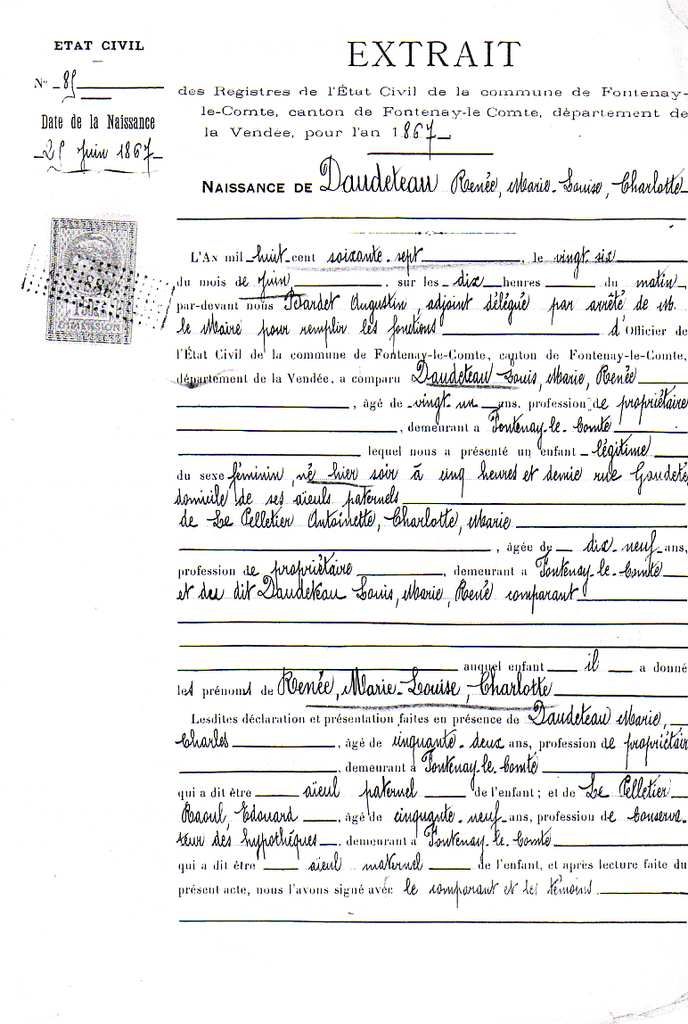 ETAT CIVIL
N° 85
Date de la Naissance
25 Juin 1867
EXTRAIT
des Registres de l'État Civil de la commune de Fontenay-
le-Comte, canton de Fontenay-le Comte, département de
la Vendée, pour l'an 1867
NAISSANCE DE Daudeteau Renée, Marie-Louise, Charlotte
L'AN mil huit-cent soixante-sept, le vingt six
du mois de Juin, sur les dix heures du matin
par-devant nous Bardet Augustin, adjoint délégué par arrêté de M.
le Maire pour remplir les fonctions d'Officier de
l'État Civil de la commune de Fontenay-le-Comte, canton de Fontenay-le-Comte,
département de la Vendée, a comparu Daudeteau Louis, Marie, Renée
, âgé de vingt un ans, profession de propriétaire
, demeurant à Fontenay-le-Comte
lequel nous a présenté un enfant légitime
du sexe féminin, né hier soir à cinq heures et demie rue
domicile de ses aïeuls paternels
de Le Pelletier Antoinette, Charlotte, Marie
, âgée de dix-neuf ans,
profession de propriétaire, demeurant à Fontenay-le-Comte
et du dit Daudeteau Louis, Marie, René comparant
auquel enfant il a donné
les prénoms de Renée, Marie-Louise, Charlotte
Lesdites déclaration et présentation faites en présence de Daudeteau Marie,
Charles, âgé de cinquante-deux ans, profession de propriétair
, demeurant à Fontenay-le-Comte
qui a dit être aïeul paternel de l'enfant; et de Le Pelletier
Raoul, Edouard, âgé de cinquante-neuf ans, profession de Conserva-
teur des hypothéques, demeurant à Fontenay-le-Comte
qui a dit être aïeul maternel de l'enfant, et après lecture faite du
présent acte, nous l'avons signé avec le comparant et les témoins.